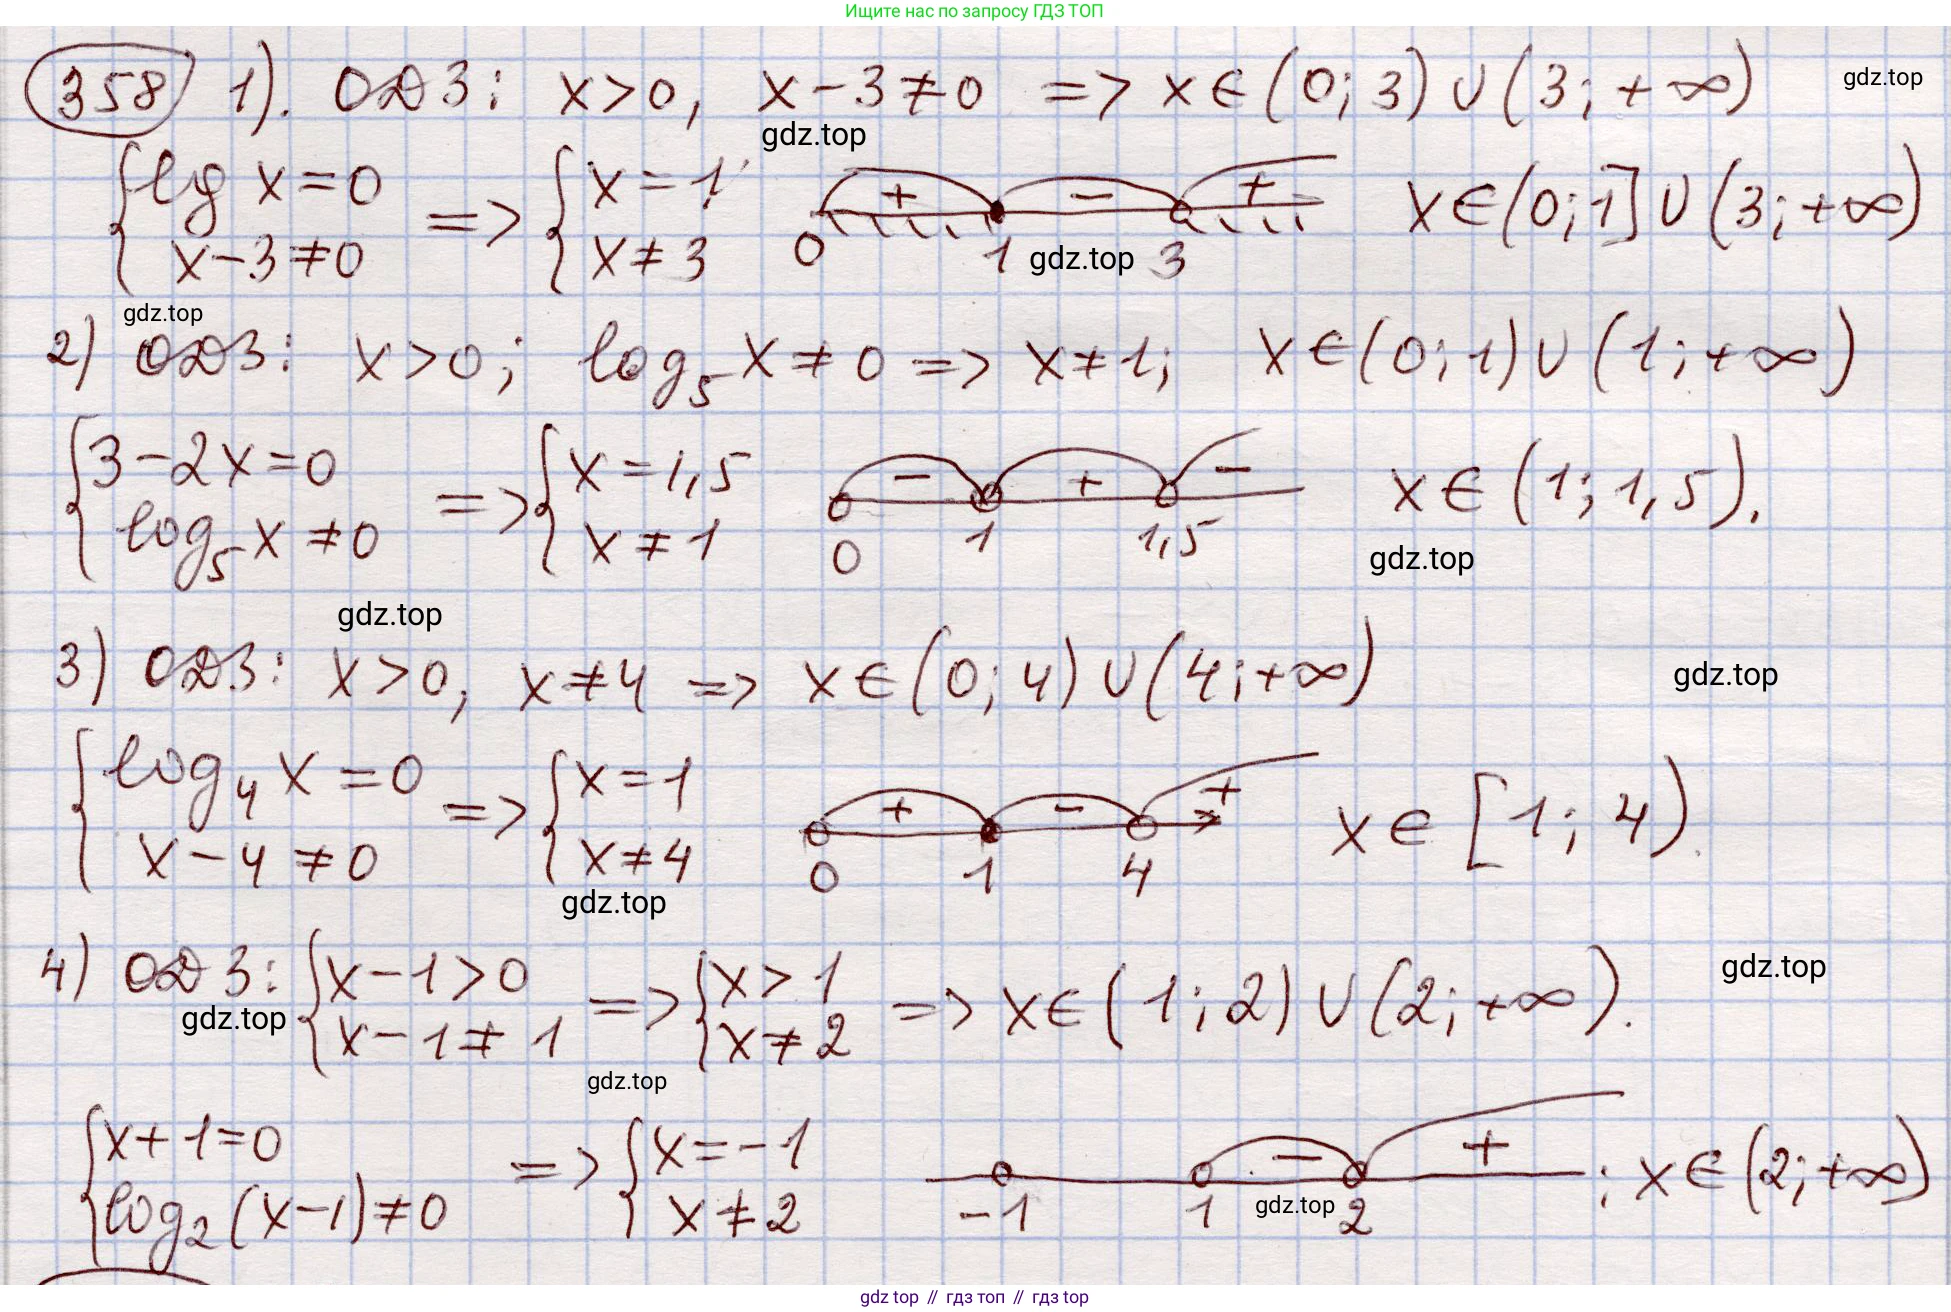 Ищите нас по запросу ГДЗ ТОП
358 1). ОДЗ: x>0, x-3≠0 => x∈(0;3)∪(3;+∞) gdz.top
gdz.top
{lg x=0 => {x=1 + - + x∈(0;1]∪(3;+∞)
x-3≠0 x≠3 0 1 gdz.top 3
gdz.top
2) ОДЗ: x>0; log₅x≠0 => x≠1; x∈(0;1)∪(1;+∞)
{3-2x=0 => {x=1,5 - + - x∈(1;1,5).
log₅x≠0 x≠1 0 1 1,5 gdz.top
gdz.top
3) ОДЗ: x>0, x≠4 => x∈(0;4)∪(4;+∞) gdz.top
{log₄x=0 => {x=1 + - + x∈[1;4).
x-4≠0 x≠4 0 1 4
gdz.top
4) ОДЗ: {x-1>0 => {x>1 => x∈(1;2)∪(2;+∞). gdz.top
gdz.top x-1≠1 x≠2
gdz.top
{x+1=0 => {x=-1 - + ; x∈(2;+∞)
log₂(x-1)≠0 x≠2 -1 1 gdz.top 2
gdz top // гдз топ // гдз top